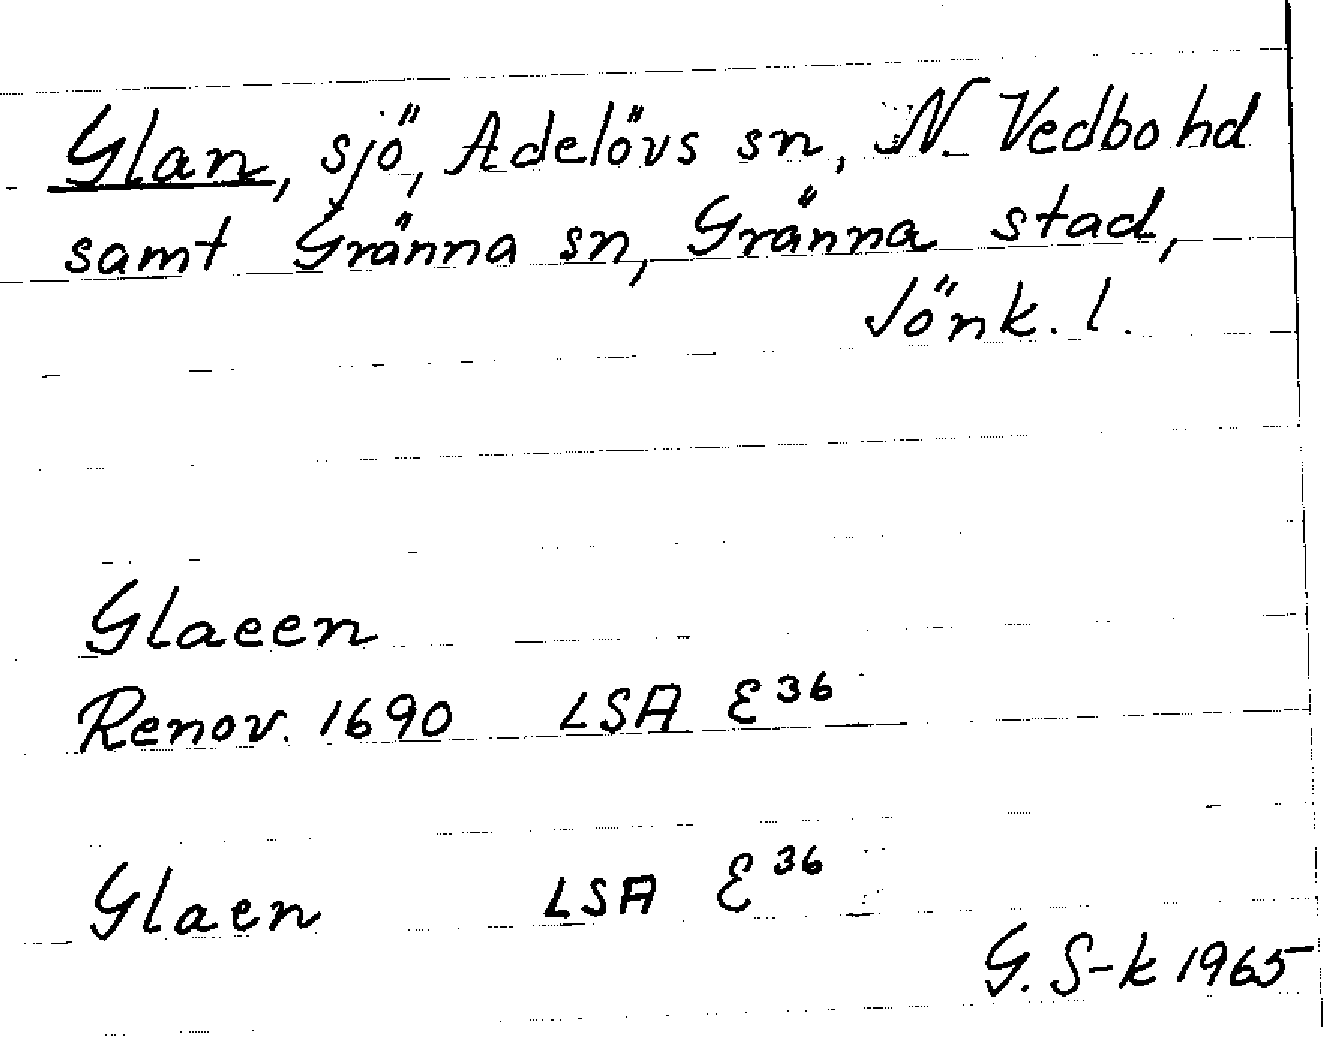 Glan, sjö, Adelövs sn, N. Vedbo hd
samt Gränna sn, Gränna stad,
Jönk. l.
Glaeen
Renov. 1690 LSA E36
Glaen LSA E36
G. S-k 1965